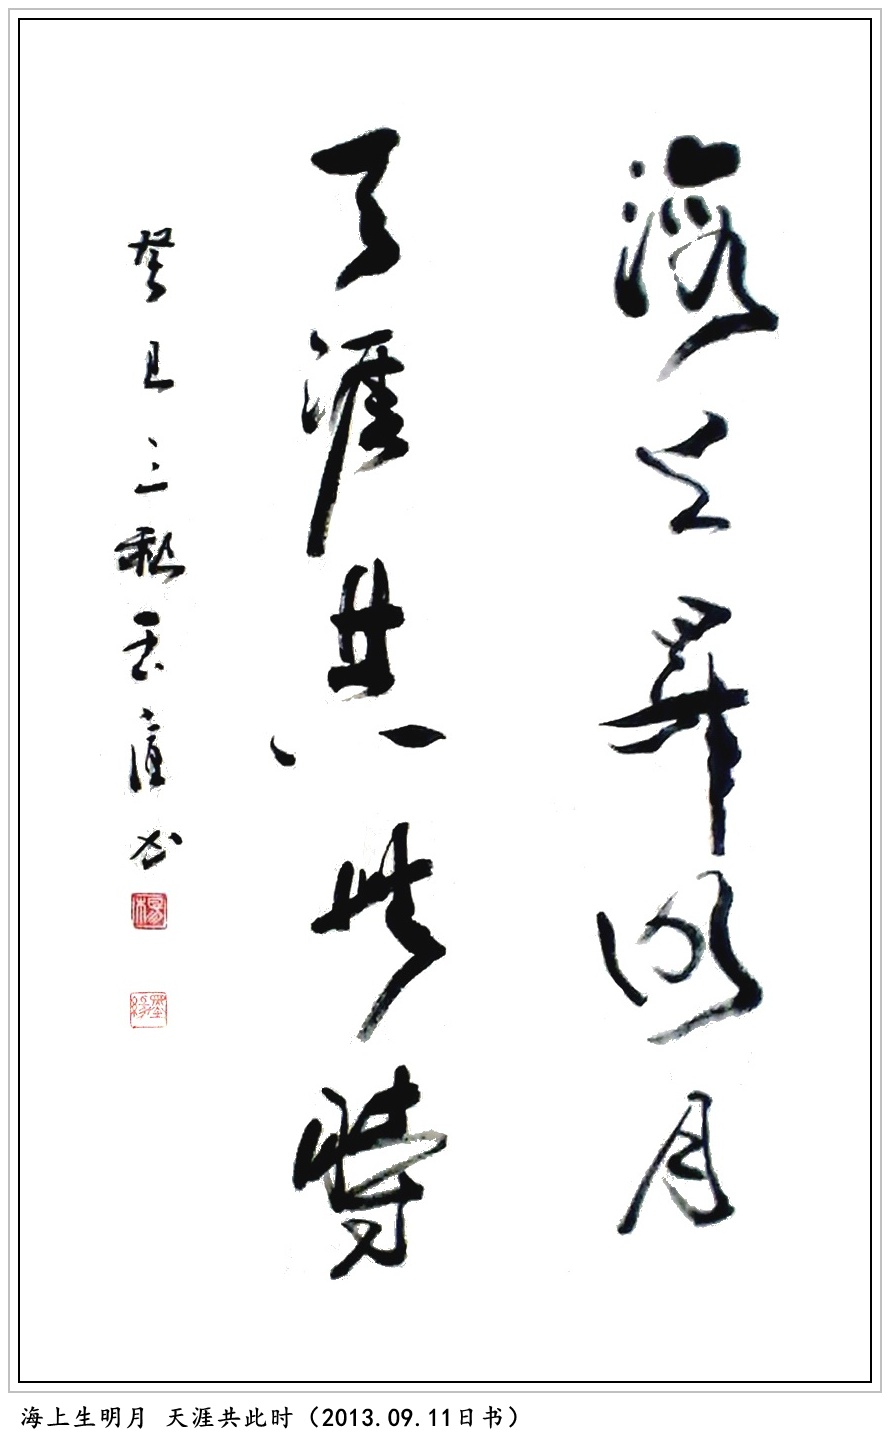 海上昇明月
天涯共此時
癸巳三秋书
楊
墨缘
海上生明月 天涯共此时（2013.09.11日书）